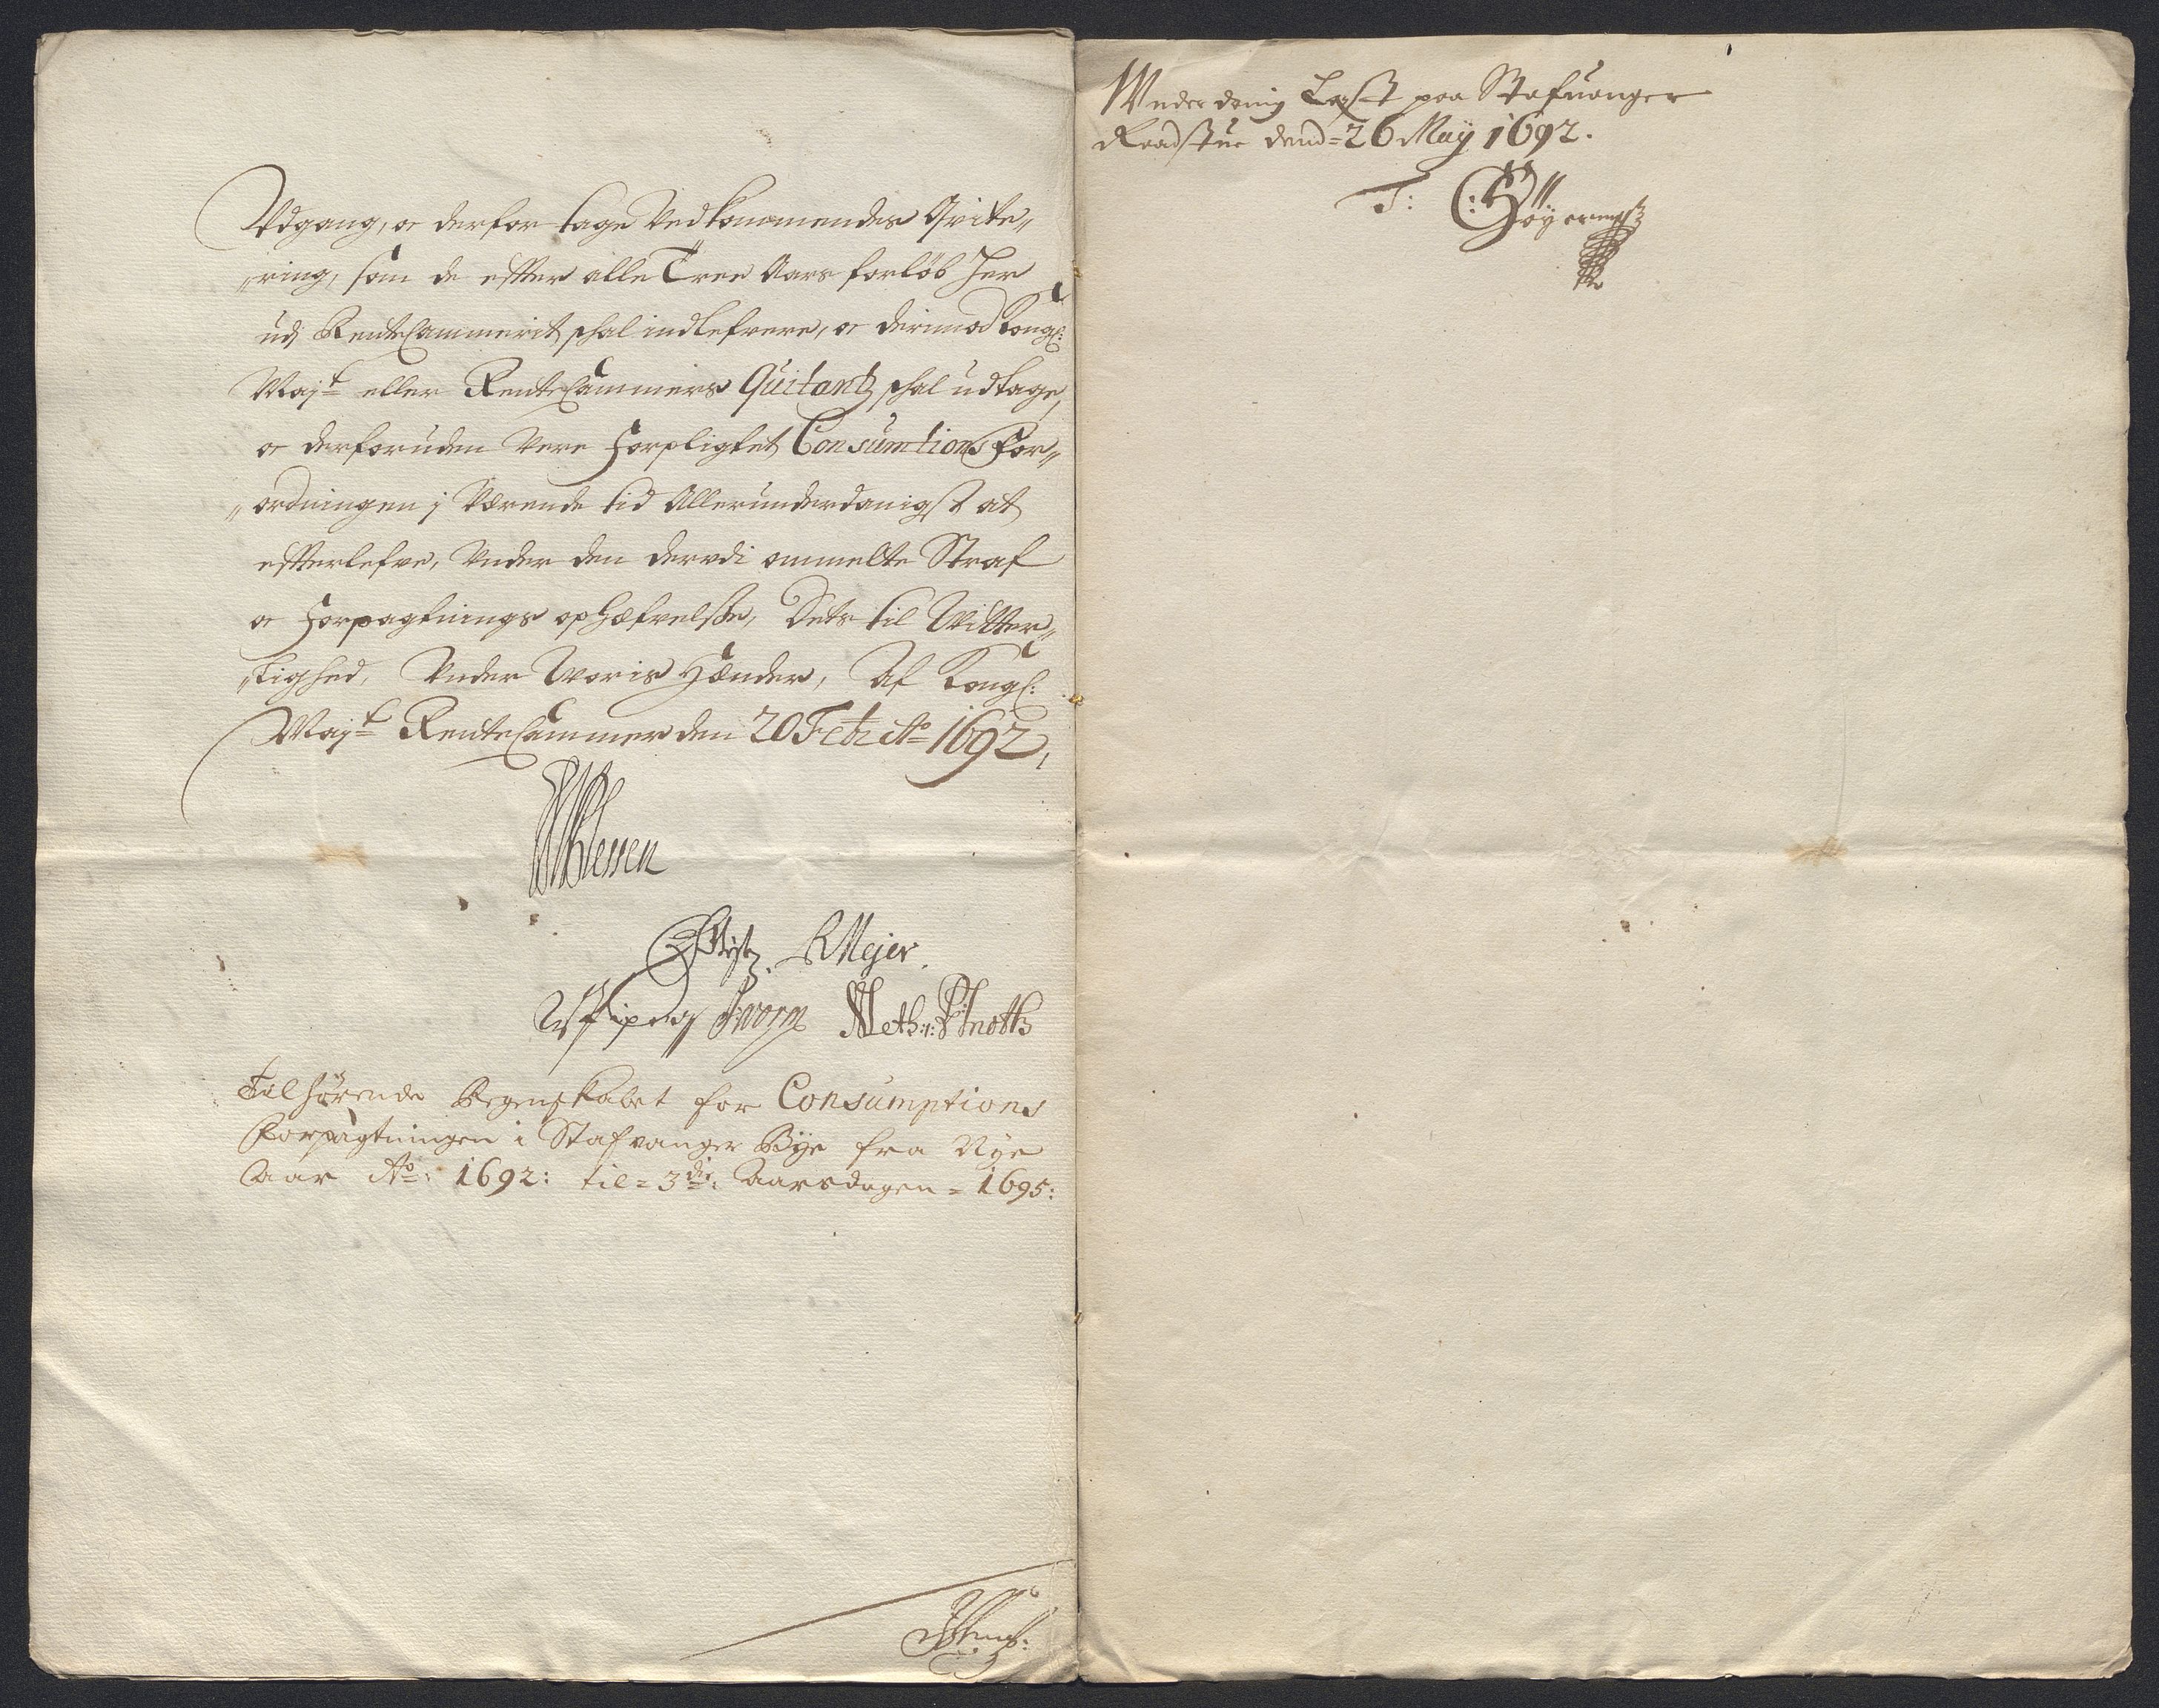 Udgang, oc derfor tage Vedkommendes Qvite„
„ring, som de effter alle Tree Aars forløb her
udj RenteCammerit schal indlefvere, oc derimod Kongl:
Majts eller RenteCammers Quitantz schal udtage,
oc derforuden Vere forpligtet Consumtions For„
„ordningen j Værende tid Allerunderdanigst at
effterlefve, Under den derudi ommelte Straf
oc Forpagtnings ophæfvelse, Dets til Witter„
„lighed, Under Woris Hænder, Af Kongl:
Majts RenteCammer den 20 Feb: Ao 1692,
Plessen
RMejer.
JWorm
Tilhørende Regenskabet for Consumptions
Forpagtningen i Stafvanger Bye fra Nye
Aar Ao: 1692: til = 3die: Aarsdagen = 1695:
Underdanig Læst paa Stafuanger
Raadstue dend = 26 Maÿ 1692.
T: